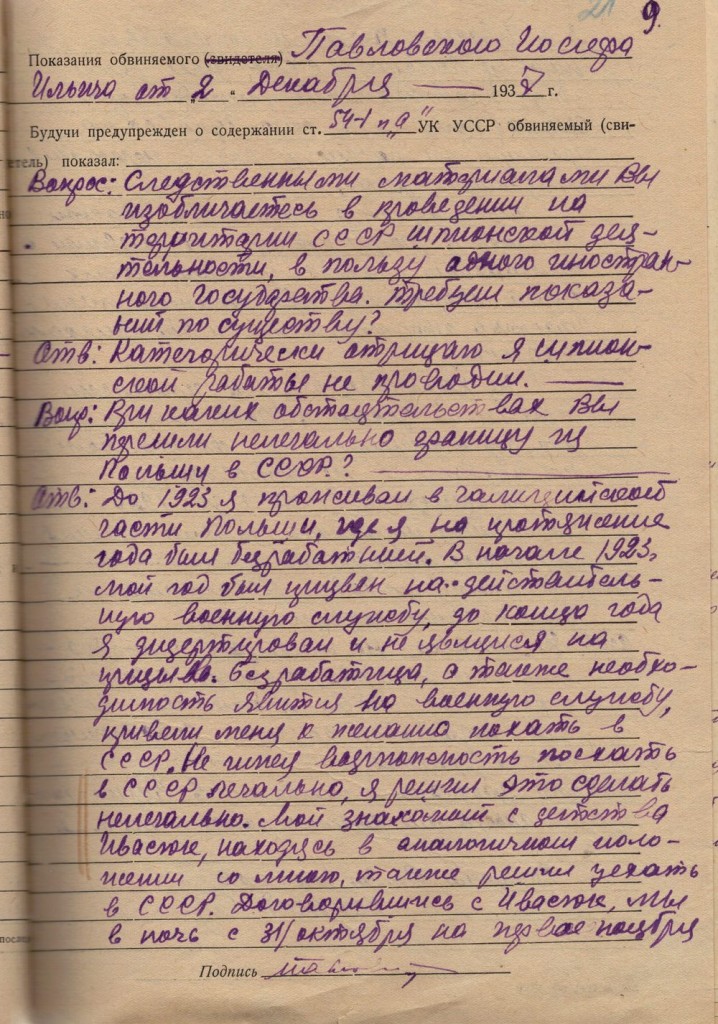 21 9.
Показания обвиняемого (свидетеля) Павловского Иосифа
Ильича от „2“ Декабря 1937 г.
Будучи предупрежден о содержании ст. 54-1 п „а“ УК УССР обвиняемый (сви-
етель) показал:
Вопрос: Следственными материалами Вы
изобличаетесь в проведении на
територии СССР шпионской дея-
тельности, в пользу одного иностран-
ного государства. Требуем показа-
ний по существу?
Отв: Категорически отрицаю я шпион-
ской работы не проводил.
Вопр: При каких обстоятельствах Вы
перешли нелегально границу из
Польши в СССР?
Отв: До 1923 я проживал в галицийской
части Польши, где я на протяжение
года был безработней. В начале 1923г.
мой год был призван на действитель-
ную военную службу, до конца года
я дизертировал и не явился на
призыв. Безработица, а также необхо-
димость явится на военную службу,
привели меня к желанию поехать в
СССР. Не имея возможность поехать
в СССР легально, я решил это сделать
нелегально. Мой знакомый с детства
Ивасюк, находясь в аналогичном поло-
жении со мною, также решил уехать
в СССР. Договорившись с Ивасюк, мы
в ночь с 31/октября на первое ноября
после
Подпись